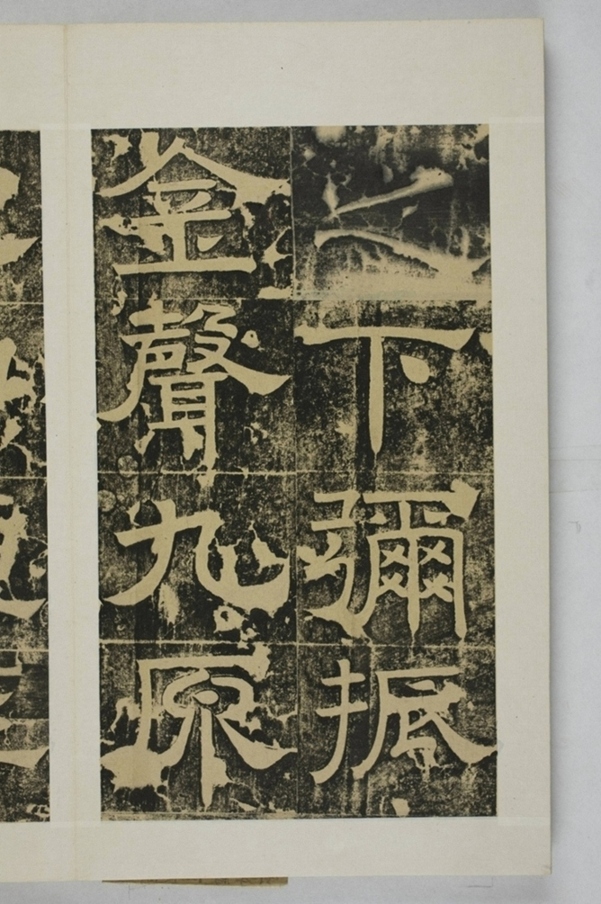 之下彌振
金聲九原